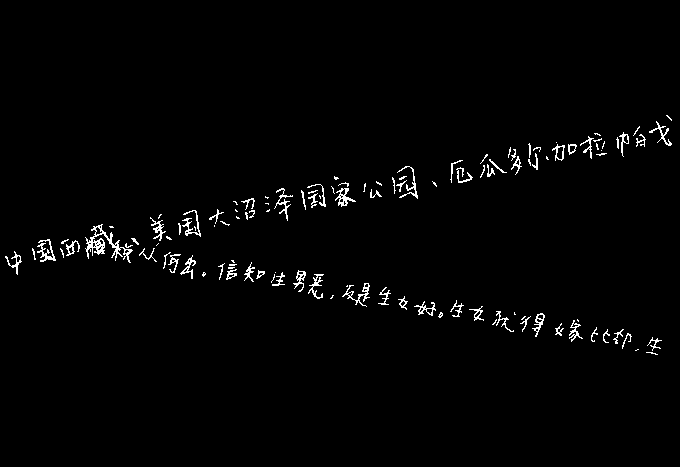 中国西藏、美国大沼泽国家公园、厄瓜多尔加拉帕戈
税从何出。信知生男恶,反是生女好。生女犹得嫁比邻,生